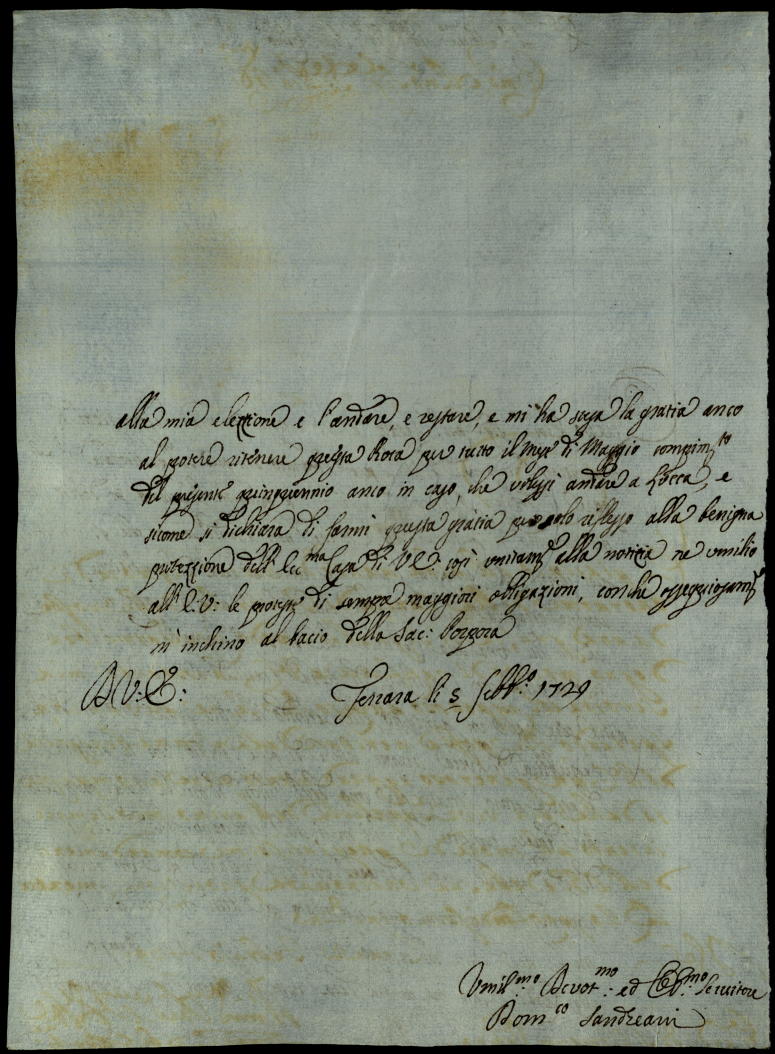 alla mia elezzione e l'andare, e restare, e mi ha scesa la gratia anco
al potere ritenere questa Rota per tutto il Mese di Maggio compim.to
del presente quinquennio anco in caso, che volessi andare a Lucca, e
sicome si dichiara di farmi questa gratia per solo riflesso alla benigna
protezzione dell' Ecc.ma Casa di V.E. così unitam.e alla notizia ne umilio
all' E.V: le proteste di sempre maggiori obligazioni, con che ossequiosam.e
m' inchino al bacio della Sac: Porpora
D V: E:
Ferrara li 5 Febb.o 1729
Umil.mo Devot.mo ed Obb.mo Servitore
Dom.co Sandreani